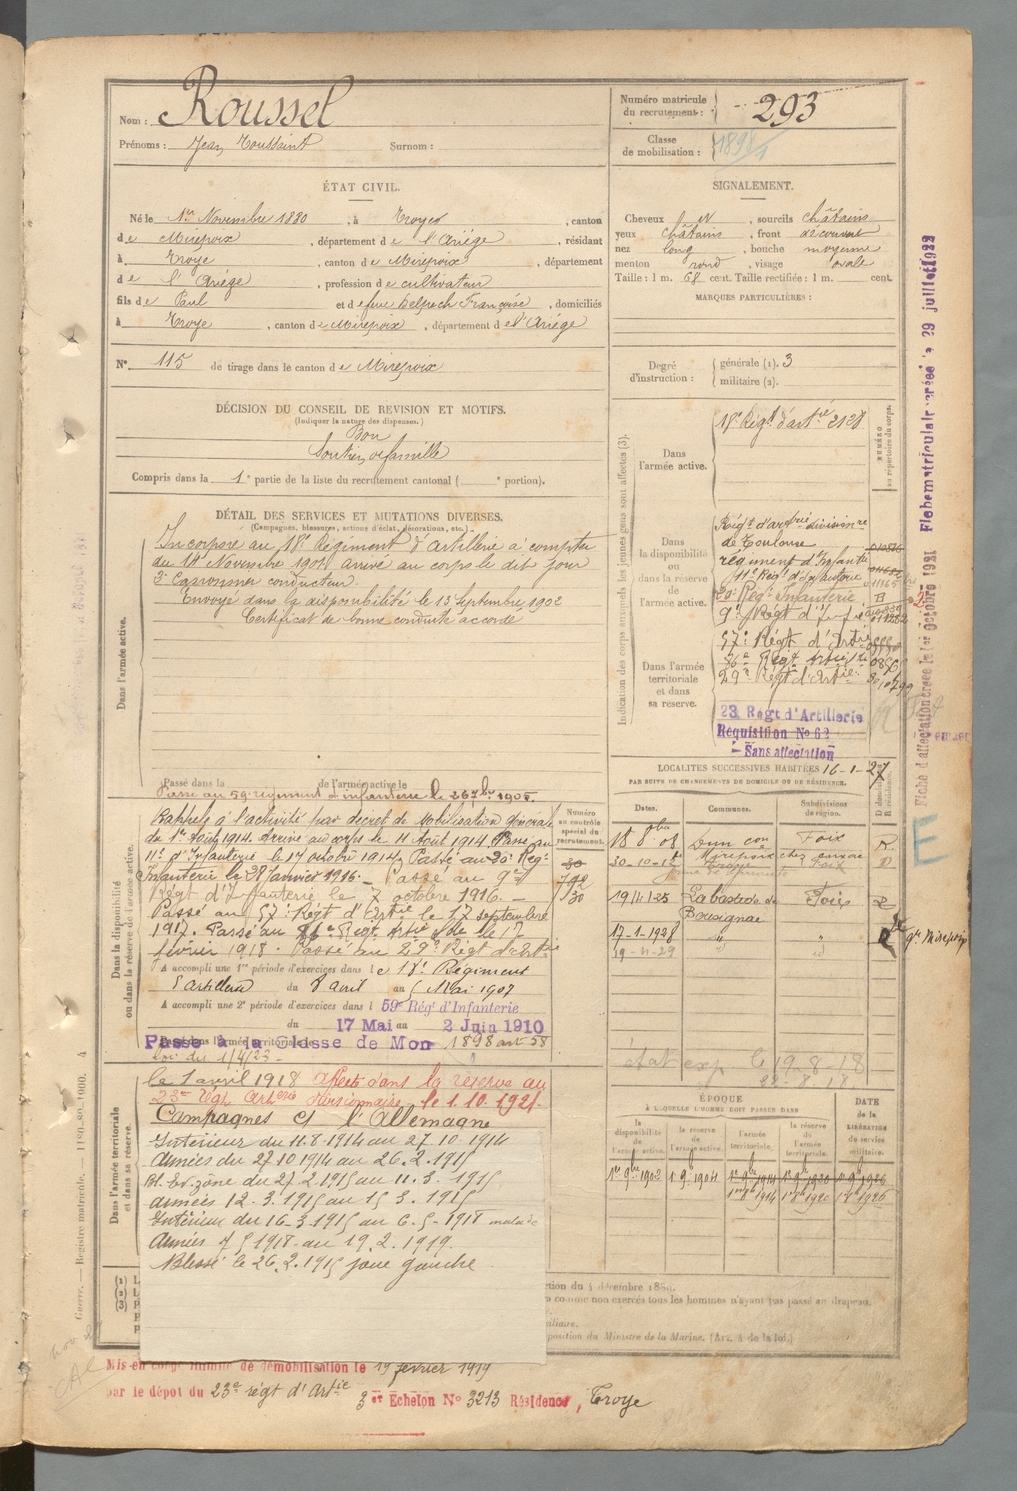 Nom : Roussel
Prénoms : Jean Toussaint Surnom :
Numéro matricule du recrutement : 293
Classe de mobilisation : 1898/1
ÉTAT CIVIL.
Né le 1er Novembre 1880, à Troyes, canton
de Mirepoix, département de l'Ariége, résidant
à Troye, canton de Mirepoix, département
de l'Ariége, profession de cultivateur
fils de Paul et de feue Delpech Françoise, domiciliés
à Troye, canton de Mirepoix, département de l'Ariége
N° 115 de tirage dans le canton de Mirepoix
DÉCISION DU CONSEIL DE REVISION ET MOTIFS.
(Indiquer la nature des dispenses.)
Bon
Soutien de famille
Compris dans la 1e partie de la liste du recrutement cantonal ( e portion).
DÉTAIL DES SERVICES ET MUTATIONS DIVERSES.
(Campagnes, blessures, actions d'éclat, décorations, etc.)
Dans l'armée active.
Incorporé au 18e Régiment d'artillerie à compter
du 14 Novembre 1901 arrivé au corps le dit jour
2e Canonnier conducteur.
Envoyé dans la disponibilité le 13 Septembre 1902
Certificat de bonne conduite accordé
Passé dans la de l'armée active le
Passé au 59e régiment d'infanterie le 26 7bre 1905.
Dans la disponibilité ou dans la réserve de l'armée active.
Rappelé à l'activité par décret de Mobilisation générale
du 1er Août 1914. Arrivé au corps le 11 Août 1914 Passé au
11e d'Infanterie le 17 octobre 1914. Passé au 20e Regt
Infanterie le 28 janvier 1916. Passé au 9e
Régt d'Infanterie le 7 octobre 1916.
Passé au 57e Régt d'Artie le 17 septembre
1917. Passé au 36e Régt Artie le 17
février 1918. Passé au 29e Régt d'Artie
A accompli une 1re période d'exercices dans le 18e Régiment
d'artillerie du 8 avril au 5 Mai 1907
A accompli une 2e période d'exercices dans l 59e Régt d'Infanterie
du 17 Mai au 2 Juin 1910
Passé à la Classe de Mon 1898 art 58
Loi du 1/4/23
Numéro au contrôle spécial du recrutement.
30
792
30
Dans l'armée territoriale et dans sa réserve.
le 1 avril 1918 affecté dans la réserve au
23me régt Artie divisionnaire le 1.10.1921.
Campagnes c/ l'Allemagne
Intérieur du 11.8.1914 au 27.10.1914
Armées du 27.10 1914 au 26.2.1915
Bl. Ev. zône du 27.2.1915 au 11.3.1915
Armées 12.3.1915 au 15.3.1915
Intérieur du 16-3-1915 au 6.5-1918 malade
Armées 7 5 1918 au 19.2.1919.
Blessé le 26.2.1915 joue gauche
Mis en congé illimité de démobilisation le 19 février 1919
par le dépot du 23e régt d'Artie 3er Echelon No 3213 Résidence, Troye
SIGNALEMENT.
Cheveux , sourcils châtains
yeux châtains, front découvert
nez long, bouche moyenne
menton rond, visage ovale
Taille : 1 m. 68 cent. Taille rectifiée : 1 m. cent.
MARQUES PARTICULIÈRES :
Degré d'instruction : générale (1). 3
militaire (2).
Indication des corps auxquels les jeunes gens sont affectés (3).
NUMÉRO au répertoire du corps.
Dans l'armée active.
18e Régt d'artie 2128
Dans la disponibilité ou dans la réserve de l'armée active.
Régt d'artrie divisionre
de Toulouse
régiment d'Infantie
11e Régt d'Infanterie
20e Regt Infanterie
9e Régt d'Infie
Dans l'armée territoriale et dans sa réserve.
57e Régt d'Artie
36e Régt Artie
29e Régt d'Artie
23. Régt d'Artillerie
Réquisition No 62
Sans affectation
16-1-27
LOCALITÉS SUCCESSIVES HABITÉES
PAR SUITE DE CHANGEMENTS DE DOMICILE OU DE RÉSIDENCE.
Dates. Communes. Subdivisions de région. D domicile R résidence.
18 8bre 08 Dun Foix R.
30-10-12 Mirepoix D
19/4/25 Labastide de Bousignac Foix R
17-1-1928 " " R gde Mirepoix
29-11-29
état exp. le 19.8.18
22.8.18
ÉPOQUE
À LAQUELLE L'HOMME DOIT PASSER DANS
la disponibilité de l'armée active. la réserve de l'armée active. l'armée territoriale. la réserve de l'armée territoriale. DATE de la LIBÉRATION du service militaire.
1er 9bre 1902 1er 9bre 1904 1er 9bre 1914 1er 9bre 1920 1er 9bre 1926
Fiche d'affectation créée le 1er Octobre 1921 Fiche matriculaire créée le 29 juillet 1922
E
Guerre. — Registre matricule. — 1180-80-1900. 4
(1)
(2)
(3)
tion du 4 décembre 1889.
comme non exercés tous les hommes n'ayant pas passé au drapeau.
position du Ministre de la Marine. (Art. 4 de la loi.)